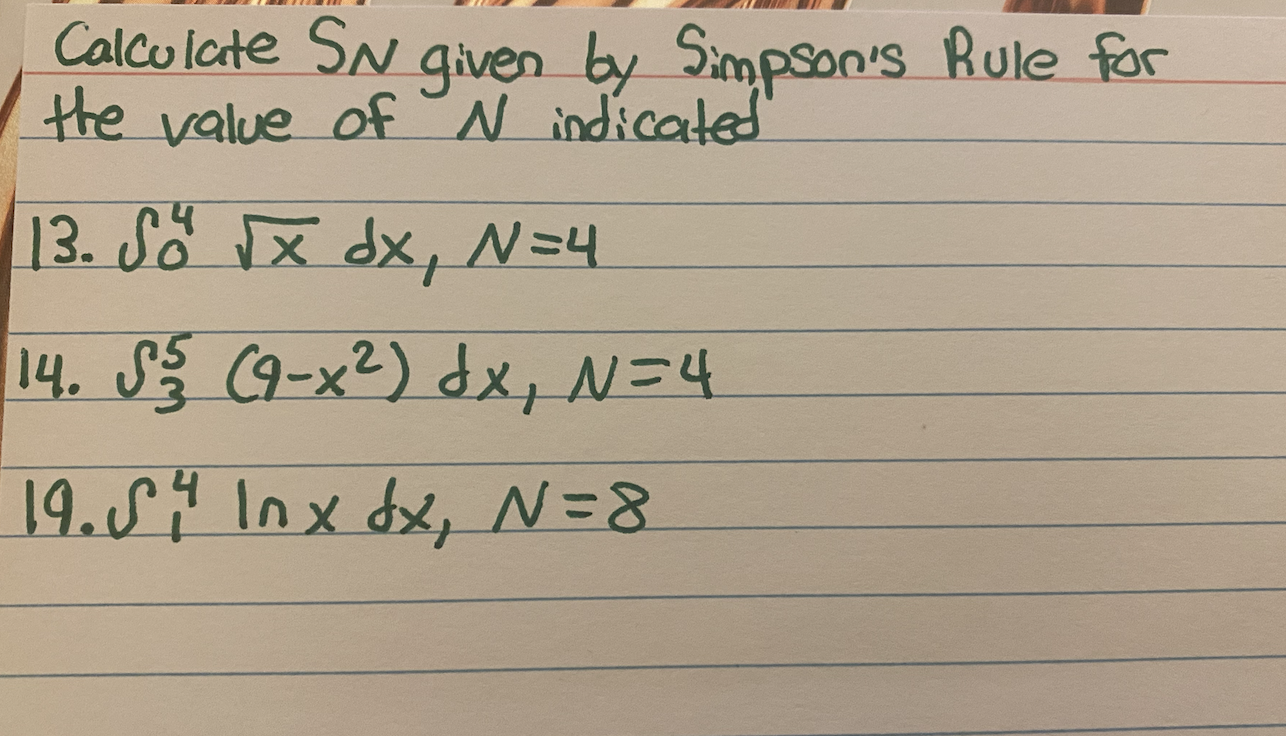 Calculate SN given by Simpson's Rule for
the value of N indicated
13. ∫₀⁴ √x dx, N=4
14. ∫₃⁵ (9-x²) dx, N=4
19. ∫₁⁴ ln x dx, N=8